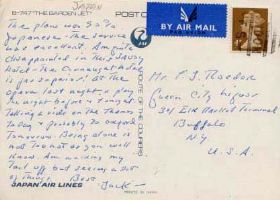 JAPAN
B-747 "THE GARDEN JET"
POST C
BY AIR MAIL
PAR AVION
The plane was 30%
Japanese - The service
was excellent.
disappointed in the Savoy
Hotel. The Connaught Hotel
is far superior! At the
opera last night & play
the night before & tonight
Taking a ride on the Thames
today & probably to Oxford
tomorrow. Being alone is
not too hot as you well
know. Am walking my
tail off but seeing a lot
of things. Best
Jack -
Mr P. J.
Queen City
34 Elk Market Terminal
Buffalo
NY
U.S.A.
JAPAN AIR LINES
PRINTED IN JAPAN